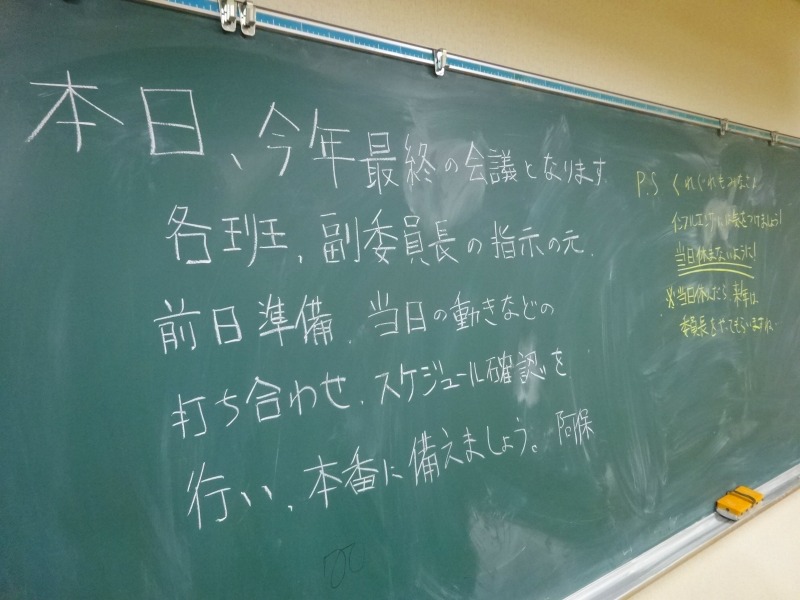 本日、今年最終の会議となります
各班、副委員長の指示の元、
前日準備、当日の動きなどの
打ち合わせ、スケジュール確認を
行い、本番に備えましょう。阿保
P.S くれぐれも
インフルエンザには気をつけましょう!
当日休まないように!
※当日休んだら、来年は
委員長をやってもらいますね